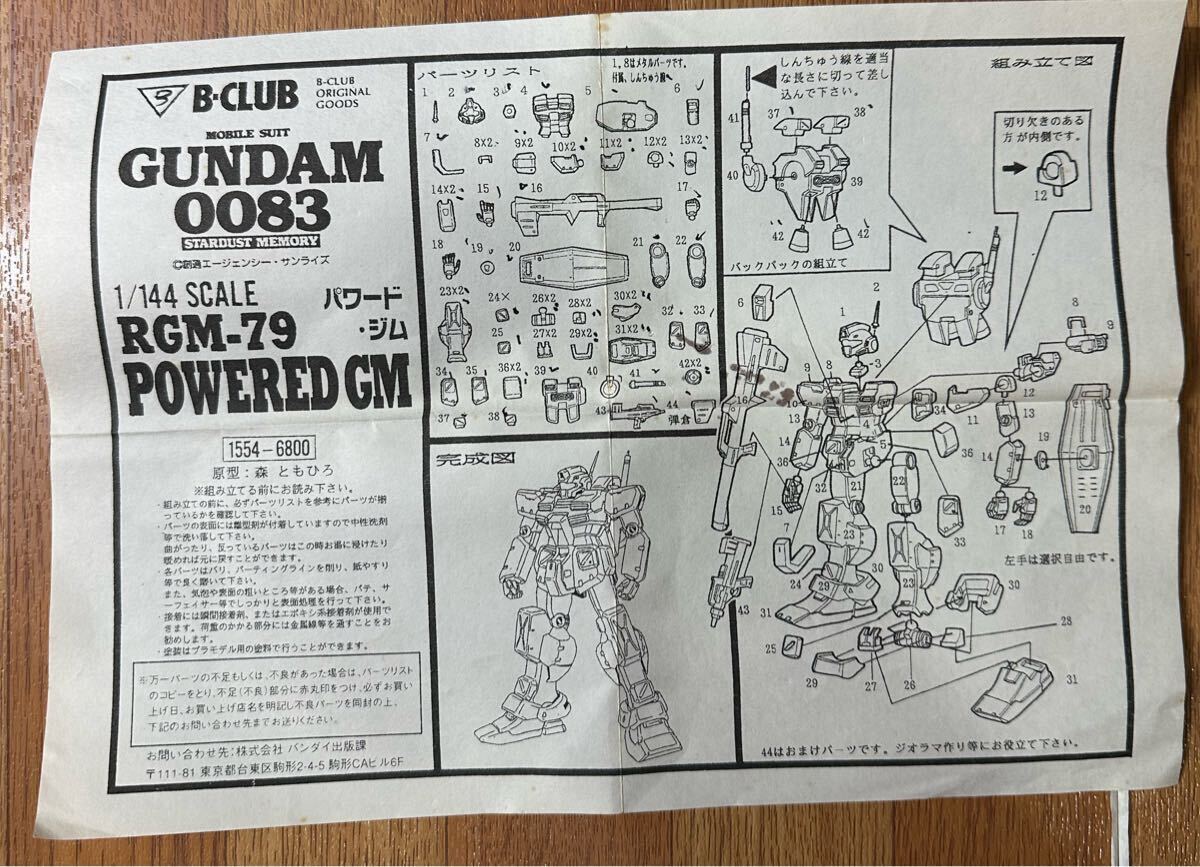 B-CLUB
B-CLUB
ORIGINAL
GOODS
MOBILE SUIT
GUNDAM
0083
STARDUST MEMORY
©創通エージェンシー・サンライズ
1/144 SCALE
パワード
・ジム
RGM-79
POWERED GM
1554-6800
原型:森 ともひろ
※組み立てる前にお読み下さい。
・組み立ての前に、必ずパーツリストを参考にパーツが揃
っているかを確認して下さい。
・パーツの表面には離型剤が付着していますので中性洗剤
等で洗い落して下さい。
曲がったり、反っているパーツはこの時お湯に浸けたり
暖めれば元に戻すことができます。
・各パーツはバリ、パーティングラインを削り、紙やすり
等で良く磨いて下さい。
また、気泡や表面の粗いところ等がある場合、パテ、サ
ーフェイサー等でしっかりと表面処理を行って下さい。
・接着には瞬間接着剤、またはエポキシ系接着剤が使用で
きます。荷重のかかる部分には金属線等を通すことをお
勧めします。
・塗装はプラモデル用の塗料で行うことができます。
※万一パーツの不足もしくは、不良があった場合は、パーツリスト
のコピーをとり、不足(不良)部分に赤丸印をつけ、必ずお買い
上げ日、お買い上げ店名を明記し不良パーツを同封の上、
下記のお問い合わせ先までお送りください。
お問い合わせ先:株式会社 バンダイ出版課
〒111-81 東京都台東区駒形2-4-5 駒形CAビル6F
パーツリスト
1,8はメタルパーツです。
付属、しんちゅう線
1 2 3 4 5 6
7 8×2 9×2 10×2 11×2 12×2 13×2
14×2 15 16 17
18 19 20 21 22
23×2 24× 26×2 28×2 30×2 32 33
25 27×2 29×2 31×2
34 35 36×2 39 40 41 42×2
37 38 43 44
弾倉
完成図
組み立て図
しんちゅう線を適当
な長さに切って差し
込んで下さい。
37 38
41
40 39
42 42
バックパックの組立て
切り欠きのある
方が内側です。
12
2
6 1 8
3 9
9 8
10 16 4 34 12
13 11 13
14 5 36 14 19
36 32 21 22
15 17 18 20
7 23 33
左手は選択自由です。
24 29 30 23 30
43 31 28
25
29 27 26 31
44はおまけパーツです。ジオラマ作り等にお役立て下さい。